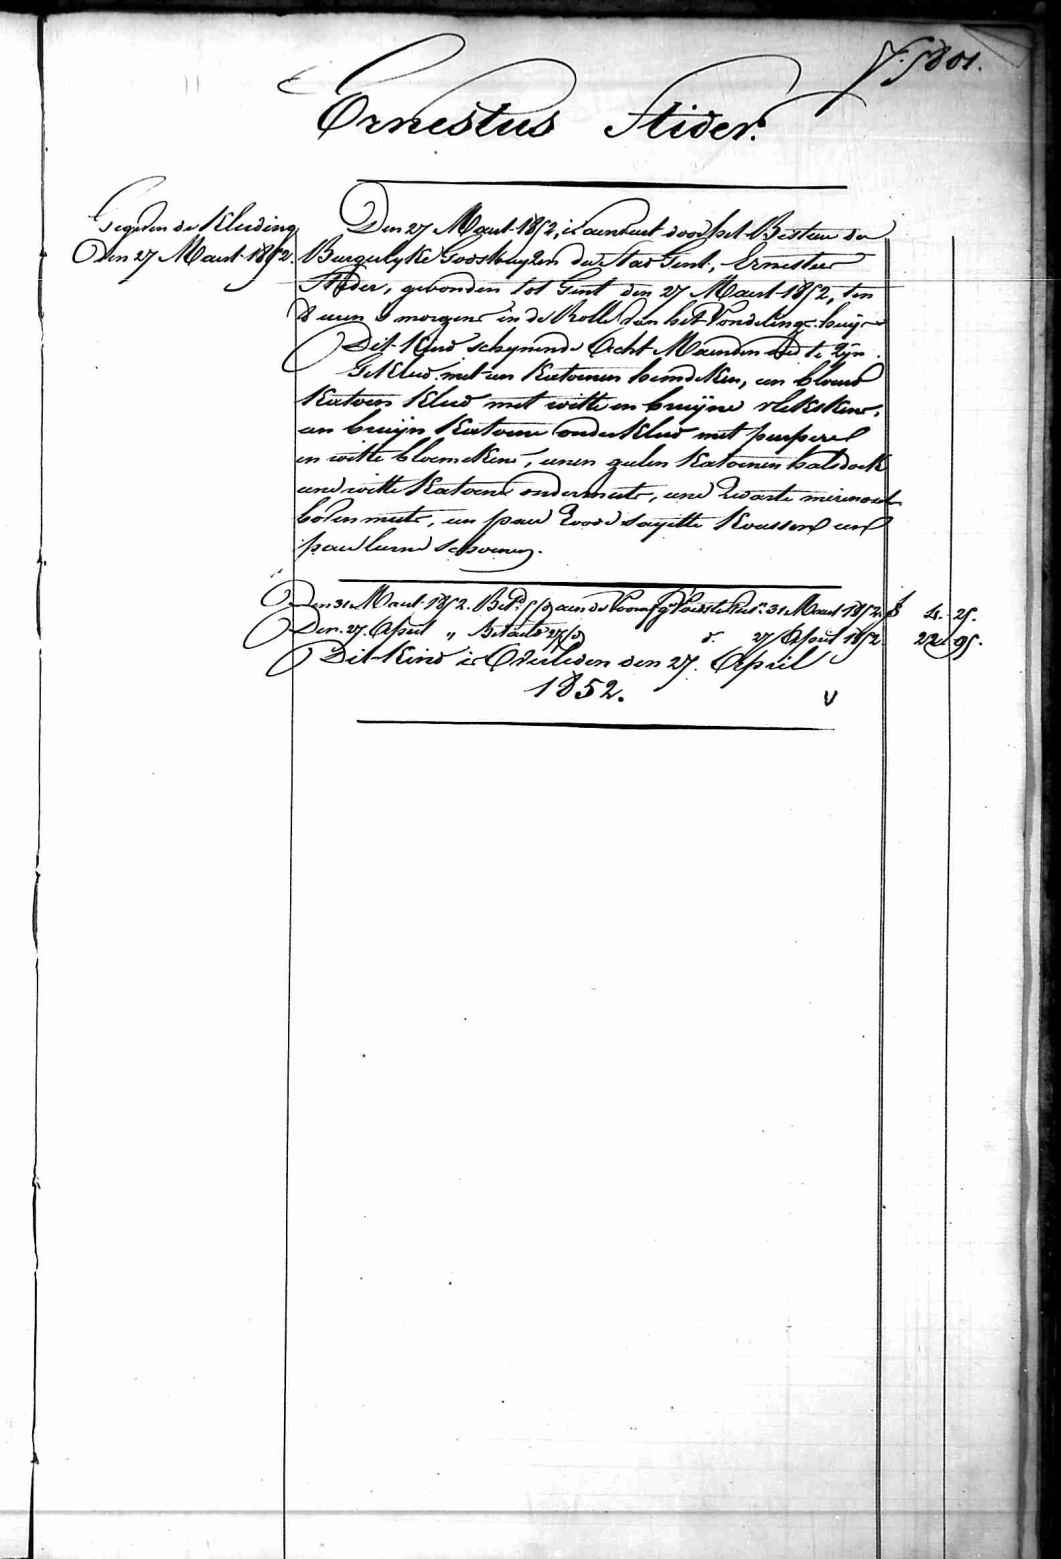 F. 5801.
Ernestus Stider.
Gegeven de Kleeding
Den 27 Maart 1852.
Den 27 Maart 1852, is aenveert door het Bestuer der
Burgerlyke Godshuyzen der Stad Gent, Ernestus
Stider, gevonden tot Gent den 27 Maart 1852, ten
8 uren 's morgens in de Rolle van het Vondelings-huijs
Dit Kind schynende Acht Maenden oud te zijn.
Gekleed met een Katoenen hemdeken, een blauw
Katoen Kleed met witte en bruijne vlekskens,
een bruijn Katoene onderkleed met purpere
en witte bloemekens, eenen gelen Katoenen halsdoek
eene witte Katoene ondermuts, eene zwarte merinos
bovenmuts, een paer roode sayette Koussen een
paer leere schoenen.
Den 31 Maart 1852. Bet.d 5/5 aen de Voorsz. 31 Maart 1852. f 4. 25.
Den 27. April „ Betaeld 27/5 d.° 27 April 1852. 22. 95.
Dit Kind is Overleden den 27. April
1852.
V